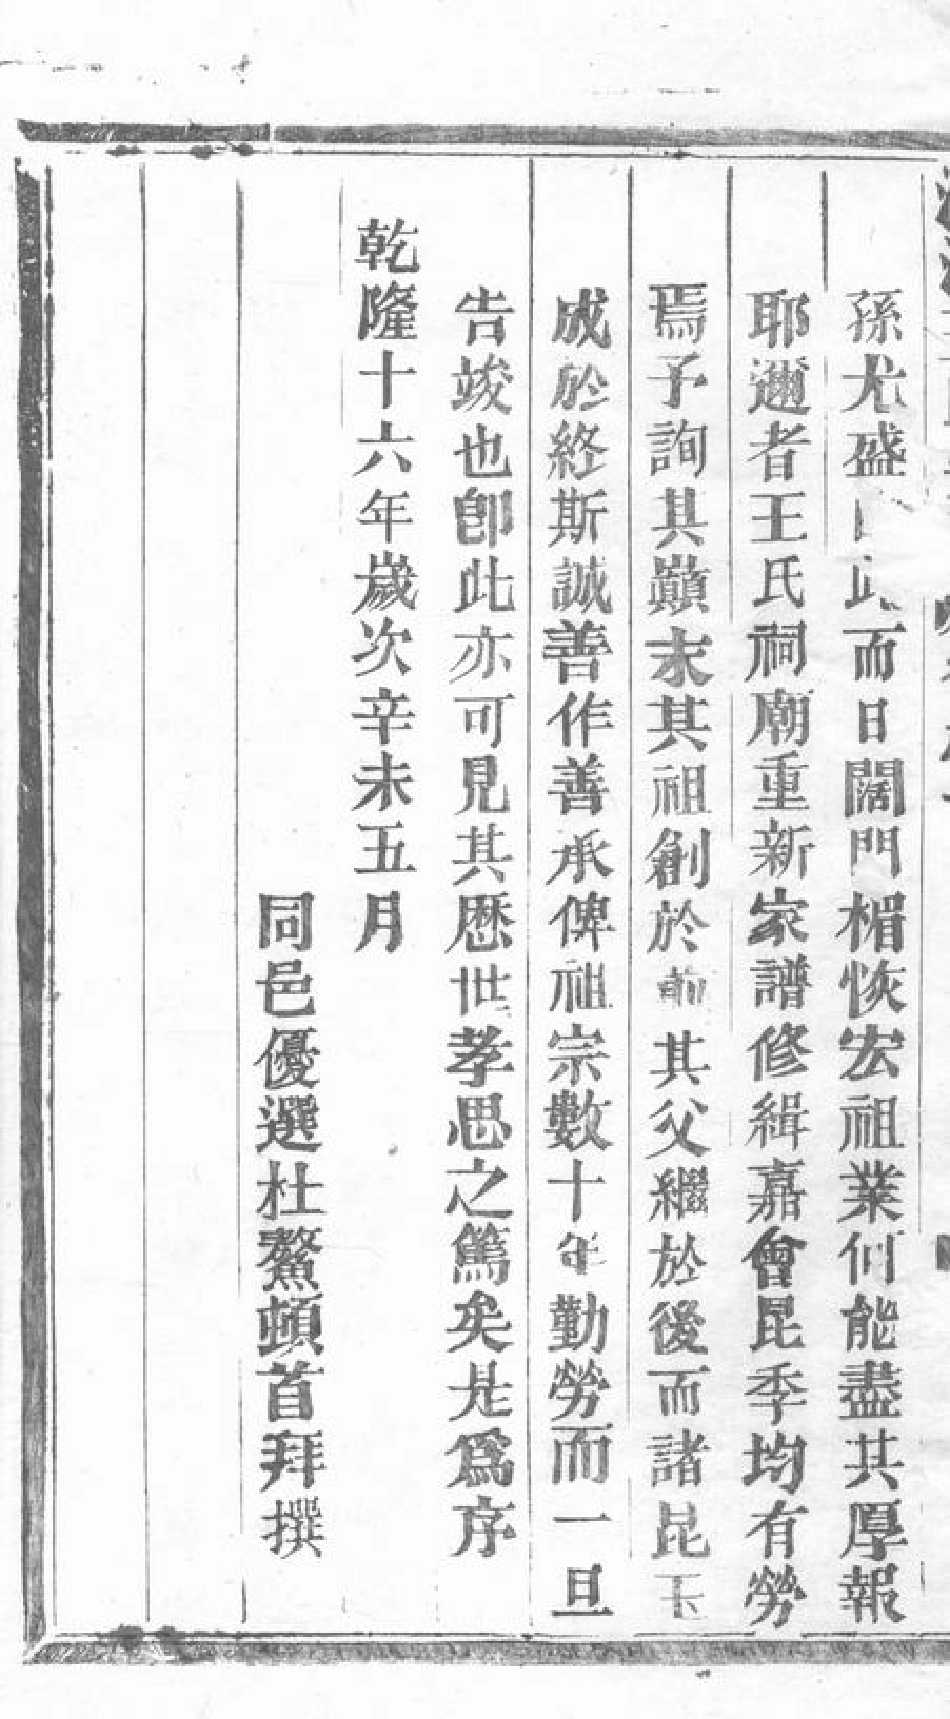 孫尤盛此而日闊門楣恢宏祖業何能盡其厚報
耶邇者王氏祠廟重新家譜修緝嘉會昆季均有勞
焉予詢其巔末其祖創於前其父繼於後而諸昆玉
成於終斯誠善作善承俾祖宗數十年勤勞而一旦
告竣也卽此亦可見其歷世孝思之篤矣是爲序
乾隆十六年歲次辛未五月
同邑優選杜鰲頓首拜撰